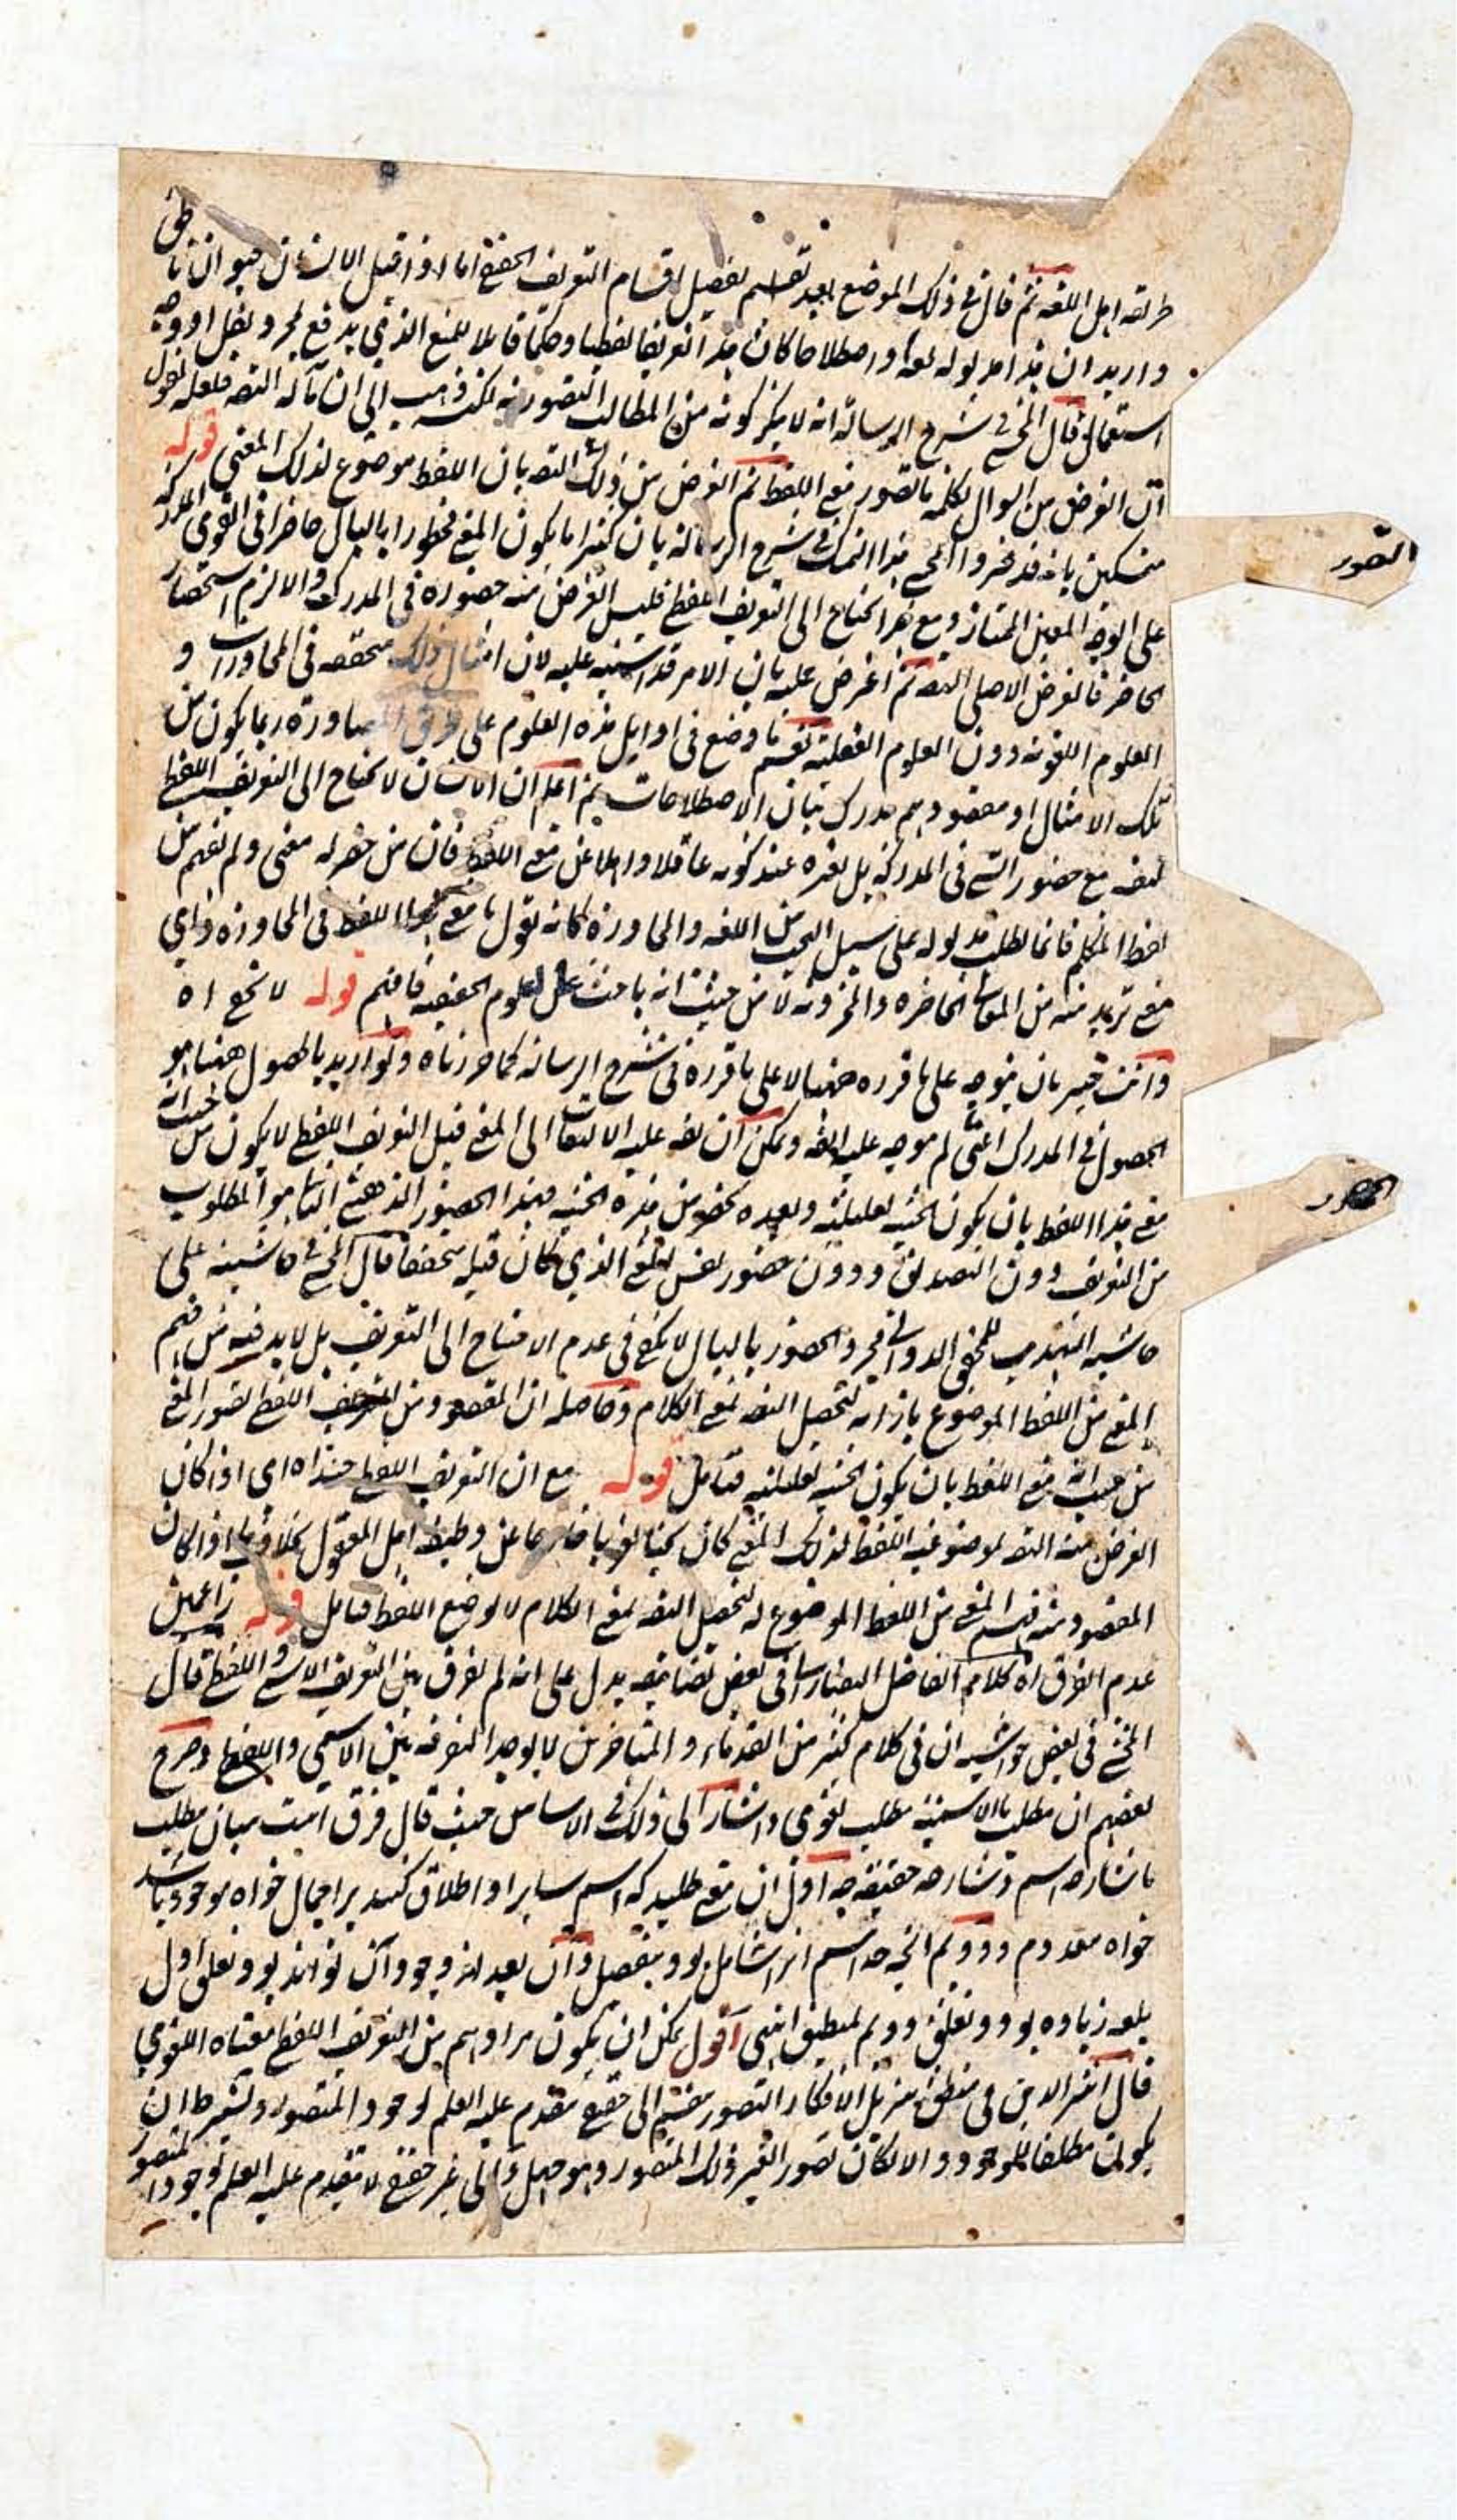 طريقه اهل اللغه ثم قال فى ذلك الموضع بعد تقسيم تفصيل اقسام التعريف الحقيقى اما اذا قيل الانسان حيوان ناطق
واريد ان هذا مدلوله لغة واصطلاحا كان هذا تعريفا لفظيا وحكما قابلا للمنع الذي يدفع بمجرد نقل او وجه
استعمال قال المحشى فى شرح الرسالة انه لا ينكر كونه من المطالب التصورية لكنه ذهب الى ان مآله التصـ فلعله يقول
ان الغرض من السوال بكلمة ما تصور معنى اللفظ ثم الغرض من ذلك التصـ بان اللفظ موضوع لذلك المعنى قوله
متمسكين بانه قد قرر المحشى هذا التمسك فى شرح الرسالة بان كثيرا ما يكون المعنى مخطورا بالبال حاضرا فى القوى المدركة
على الوجه المعين الممتاز ومع هذا يحتاج الى التعريف اللفظى فليس الغرض منه حضوره فى المدركة والا لزم استحضار
الحاضر فالغرض الاصلى التصـ ثم اعترض عليه بان الامر قد اشتبه عليه لان امثال ذلك متحققة فى المحاورات و
العلوم اللغوية دون العلوم العقلية نعم ما وضع فى اوايل هذه العلوم على طرق المصادرة ربما يكون من
تلك الامثال او مقصودهم مدرك بيان الاصطلاحات ثم اعلم ان الانسان لا يحتاج الى التعريف اللفظى
لنفسه مع حضور الشى فى المدركة بل لغيره عند كونه غافلا وذاهلا عن معنى اللفظ فان من حضر له معنى ولم يفهم من
لفظ المتكلم فانما يطلب مدلوله على سبيل البحث من اللغة والمحاورة كانه يقول ما معنى هذا اللفظ فى المحاورة واي
معنى تريد منه من المعانى الحاضرة والمخزونة لا من حيث انه باحث عن العلوم الحقيقية فافهم قوله لا يخفى اه
وانت خبير بان يتوجه على ما قرره ههنا لا على ما قرره فى شرح الرسالة كما حررناه ولو اريد بالحصول ههنا هو
الحصول فى المدرك اعنى لم يتوجه عليه ايضا ويمكن ان يقـ عليه الالتفات الى المعنى قبل التعريف اللفظى لا يكون من حيث انه
معنى هذا اللفظ بان يكون الحيثية تعليلية وبعده يحضر من هذه الحيثية فهذا الحضور الذهنى الثانى هو المطلوب
من التعريف دون التصديق ودون حضور نفس المعنى الذي كان قبله متحققا قال المحشى فى حاشيته على
حاشية التهذيب للمحقق الدوانى مجرد الحضور بالبال لا يكفى فى عدم الاحتياج الى التعريف بل لا بد فيه من فهم
المعنى من اللفظ الموضوع بازائه لتحصيل التصـ بمعنى الكلام وحاصله ان المقصود من التعريف اللفظى تصور المعنى
من حيث انه معنى اللفظ بان يكون الحيثية تعليلية فتامل قوله مع ان التعريف اللفظى حينئذ اه اى اذا كان
الغرض منه التصـ لموضوعية اللفظ لذلك المعنى كان بحثا لغويا خارجا عن وظيفة اهل المعقول بخلاف ما اذا كان
المقصود منه فهم المعنى من اللفظ الموضوع له لتحصيل التصـ بمعنى الكلام لا لوضع اللفظ فتامل قوله زاعمين
عدم الفرق اه كلام الفاضل التفتازانى فى بعض تصانيفه يدل على انه لم يفرق بين التعريف الاسمى واللفظى قال
المحشى فى بعض حواشيه ان فى كلام كثير من القدماء والمتاخرين لا يوجد التفرقة بين الاسمى واللفظى وصرح
بعضهم ان مطلب ما الاسمية مطلب لغوي واشار الى ذلك فى الاساس حيث قال فرق است ميان مطلب
ما شارحه اسم وشارحه حقيقة چه اول ان معنى طلبد كه اسم بر او اطلاق كنند بر اجمال خواه موجود باشد
خواه معدوم ودويم انچه حد اسم انرا شامل بود بتفصيل وآن بعد از وجود آن تواند بود وتعلق اول
بلغه زياده بود وتعلق دويم بمنطق انتهى اقول يمكن ان يكون مرادهم من التعريف اللفظى معناه اللغوي
قال اثير الدين فى منطق تنزيل الافكار التصور منقسم الى حقيقى متقدم عليه العلم بوجود المتصور ويشترط ان
يكون مطابقا للموجود والا لكان تصورا لغير ذلك المتصور وهو جهل والى غير حقيقى لا يتقدم عليه العلم بوجود المتصور
التصور
الحضور